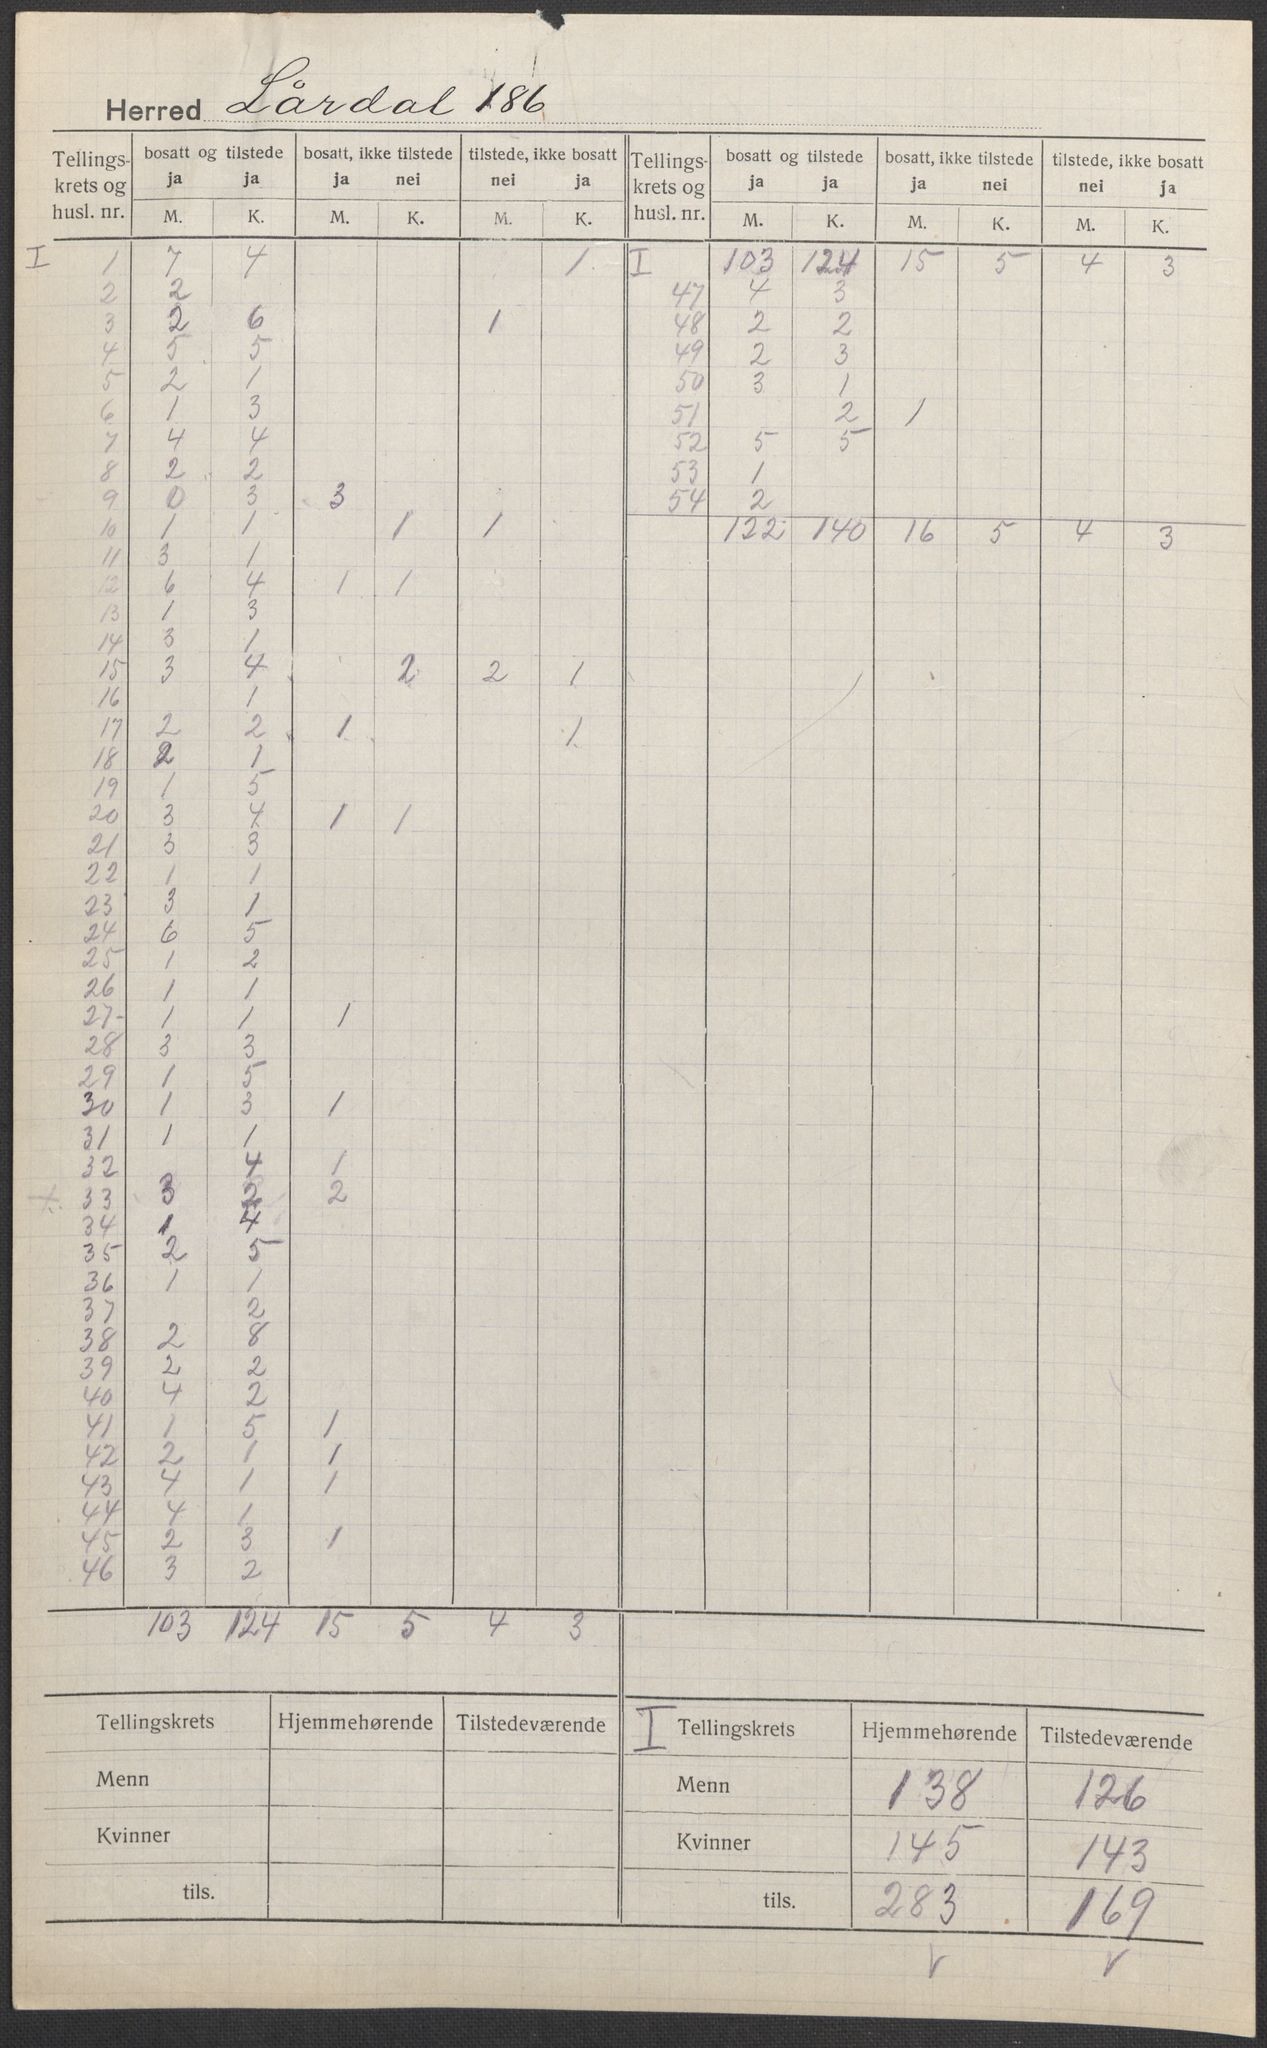 Herred Lårdal 186
Tellings- krets og husl. nr. | bosatt og tilstede ja M. | ja K. | bosatt, ikke tilstede ja M. | nei K. | tilstede, ikke bosatt nei M. | ja K.
I 1 | 7 | 4 | | | | 1
2 | 2 | | | | |
3 | 2 | 6 | | | 1 |
4 | 5 | 5 | | | |
5 | 2 | 1 | | | |
6 | 1 | 3 | | | |
7 | 4 | 4 | | | |
8 | 2 | 2 | | | |
9 | 0 | 3 | 3 | | |
10 | 1 | 1 | | 1 | 1 |
11 | 3 | 1 | | | |
12 | 6 | 4 | 1 | 1 | |
13 | 1 | 3 | | | |
14 | 3 | 1 | | | |
15 | 3 | 4 | | 2 | 2 | 1
16 | | 1 | | | |
17 | 2 | 2 | 1 | | | 1
18 | 2 | 1 | | | |
19 | 1 | 5 | | | |
20 | 3 | 4 | 1 | 1 | |
21 | 3 | 3 | | | |
22 | 1 | 1 | | | |
23 | 3 | 1 | | | |
24 | 6 | 5 | | | |
25 | 1 | 2 | | | |
26 | 1 | 1 | | | |
27 | 1 | 1 | 1 | | |
28 | 3 | 3 | | | |
29 | 1 | 5 | | | |
30 | 1 | 3 | 1 | | |
31 | 1 | 1 | | | |
32 | | 4 | 1 | | |
x 33 | 3 | 2 | 2 | | |
34 | 1 | 4 | | | |
35 | 2 | 5 | | | |
36 | 1 | 1 | | | |
37 | | 2 | | | |
38 | 2 | 8 | | | |
39 | 2 | 2 | | | |
40 | 4 | 2 | | | |
41 | 1 | 5 | 1 | | |
42 | 2 | 1 | 1 | | |
43 | 4 | 1 | 1 | | |
44 | 4 | 1 | | | |
45 | 2 | 3 | 1 | | |
46 | 3 | 2 | | | |
103 | 124 | 15 | 5 | 4 | 3
Tellings- krets og husl. nr. | bosatt og tilstede ja M. | ja K. | bosatt, ikke tilstede ja M. | nei K. | tilstede, ikke bosatt nei M. | ja K.
I | 103 | 124 | 15 | 5 | 4 | 3
47 | 4 | 3 | | | |
48 | 2 | 2 | | | |
49 | 2 | 3 | | | |
50 | 3 | 1 | | | |
51 | | 2 | 1 | | |
52 | 5 | 5 | | | |
53 | 1 | | | | |
54 | 2 | | | | |
122 | 140 | 16 | 5 | 4 | 3
Tellingskrets | Hjemmehørende | Tilstedeværende
Menn
Kvinner
tils.
I Tellingskrets | Hjemmehørende | Tilstedeværende
Menn | 138 | 126
Kvinner | 145 | 143
tils. | 283 | 169